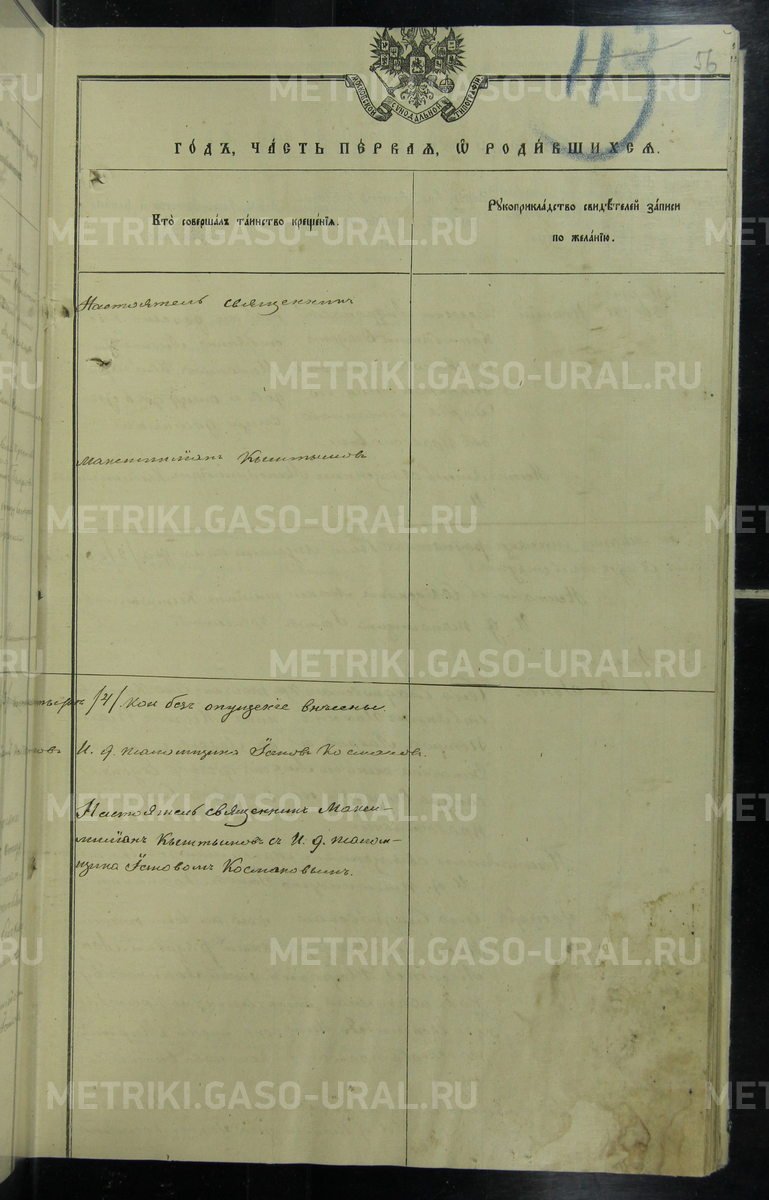 113
56
МОСКОВСКОЙ СѴНОДАЛЬНОЙ ТИПОГРАФІИ
ГО́ДЪ, ЧА́СТЬ ПЕ́РВАЯ, Ѡ҆ РОДИ́ВШИХСѦ.
Кто̀ соверша́лъ та́инство креще́нїѧ.
Рꙋкоприкла́дство свидѣ́телей за́писи
по жела́нїю.
Настоятель священникъ
Максимиліанъ Кыштымовъ
/4/. кои безъ опущенія внесены.
И. д. псаломщика Іаковъ Космаковъ.
Настоятель священникъ Макси-
миліанъ Кыштымовъ съ И. д. псалом-
щика Іаковомъ Космаковымъ.
METRIKI.GASO-URAL.RU